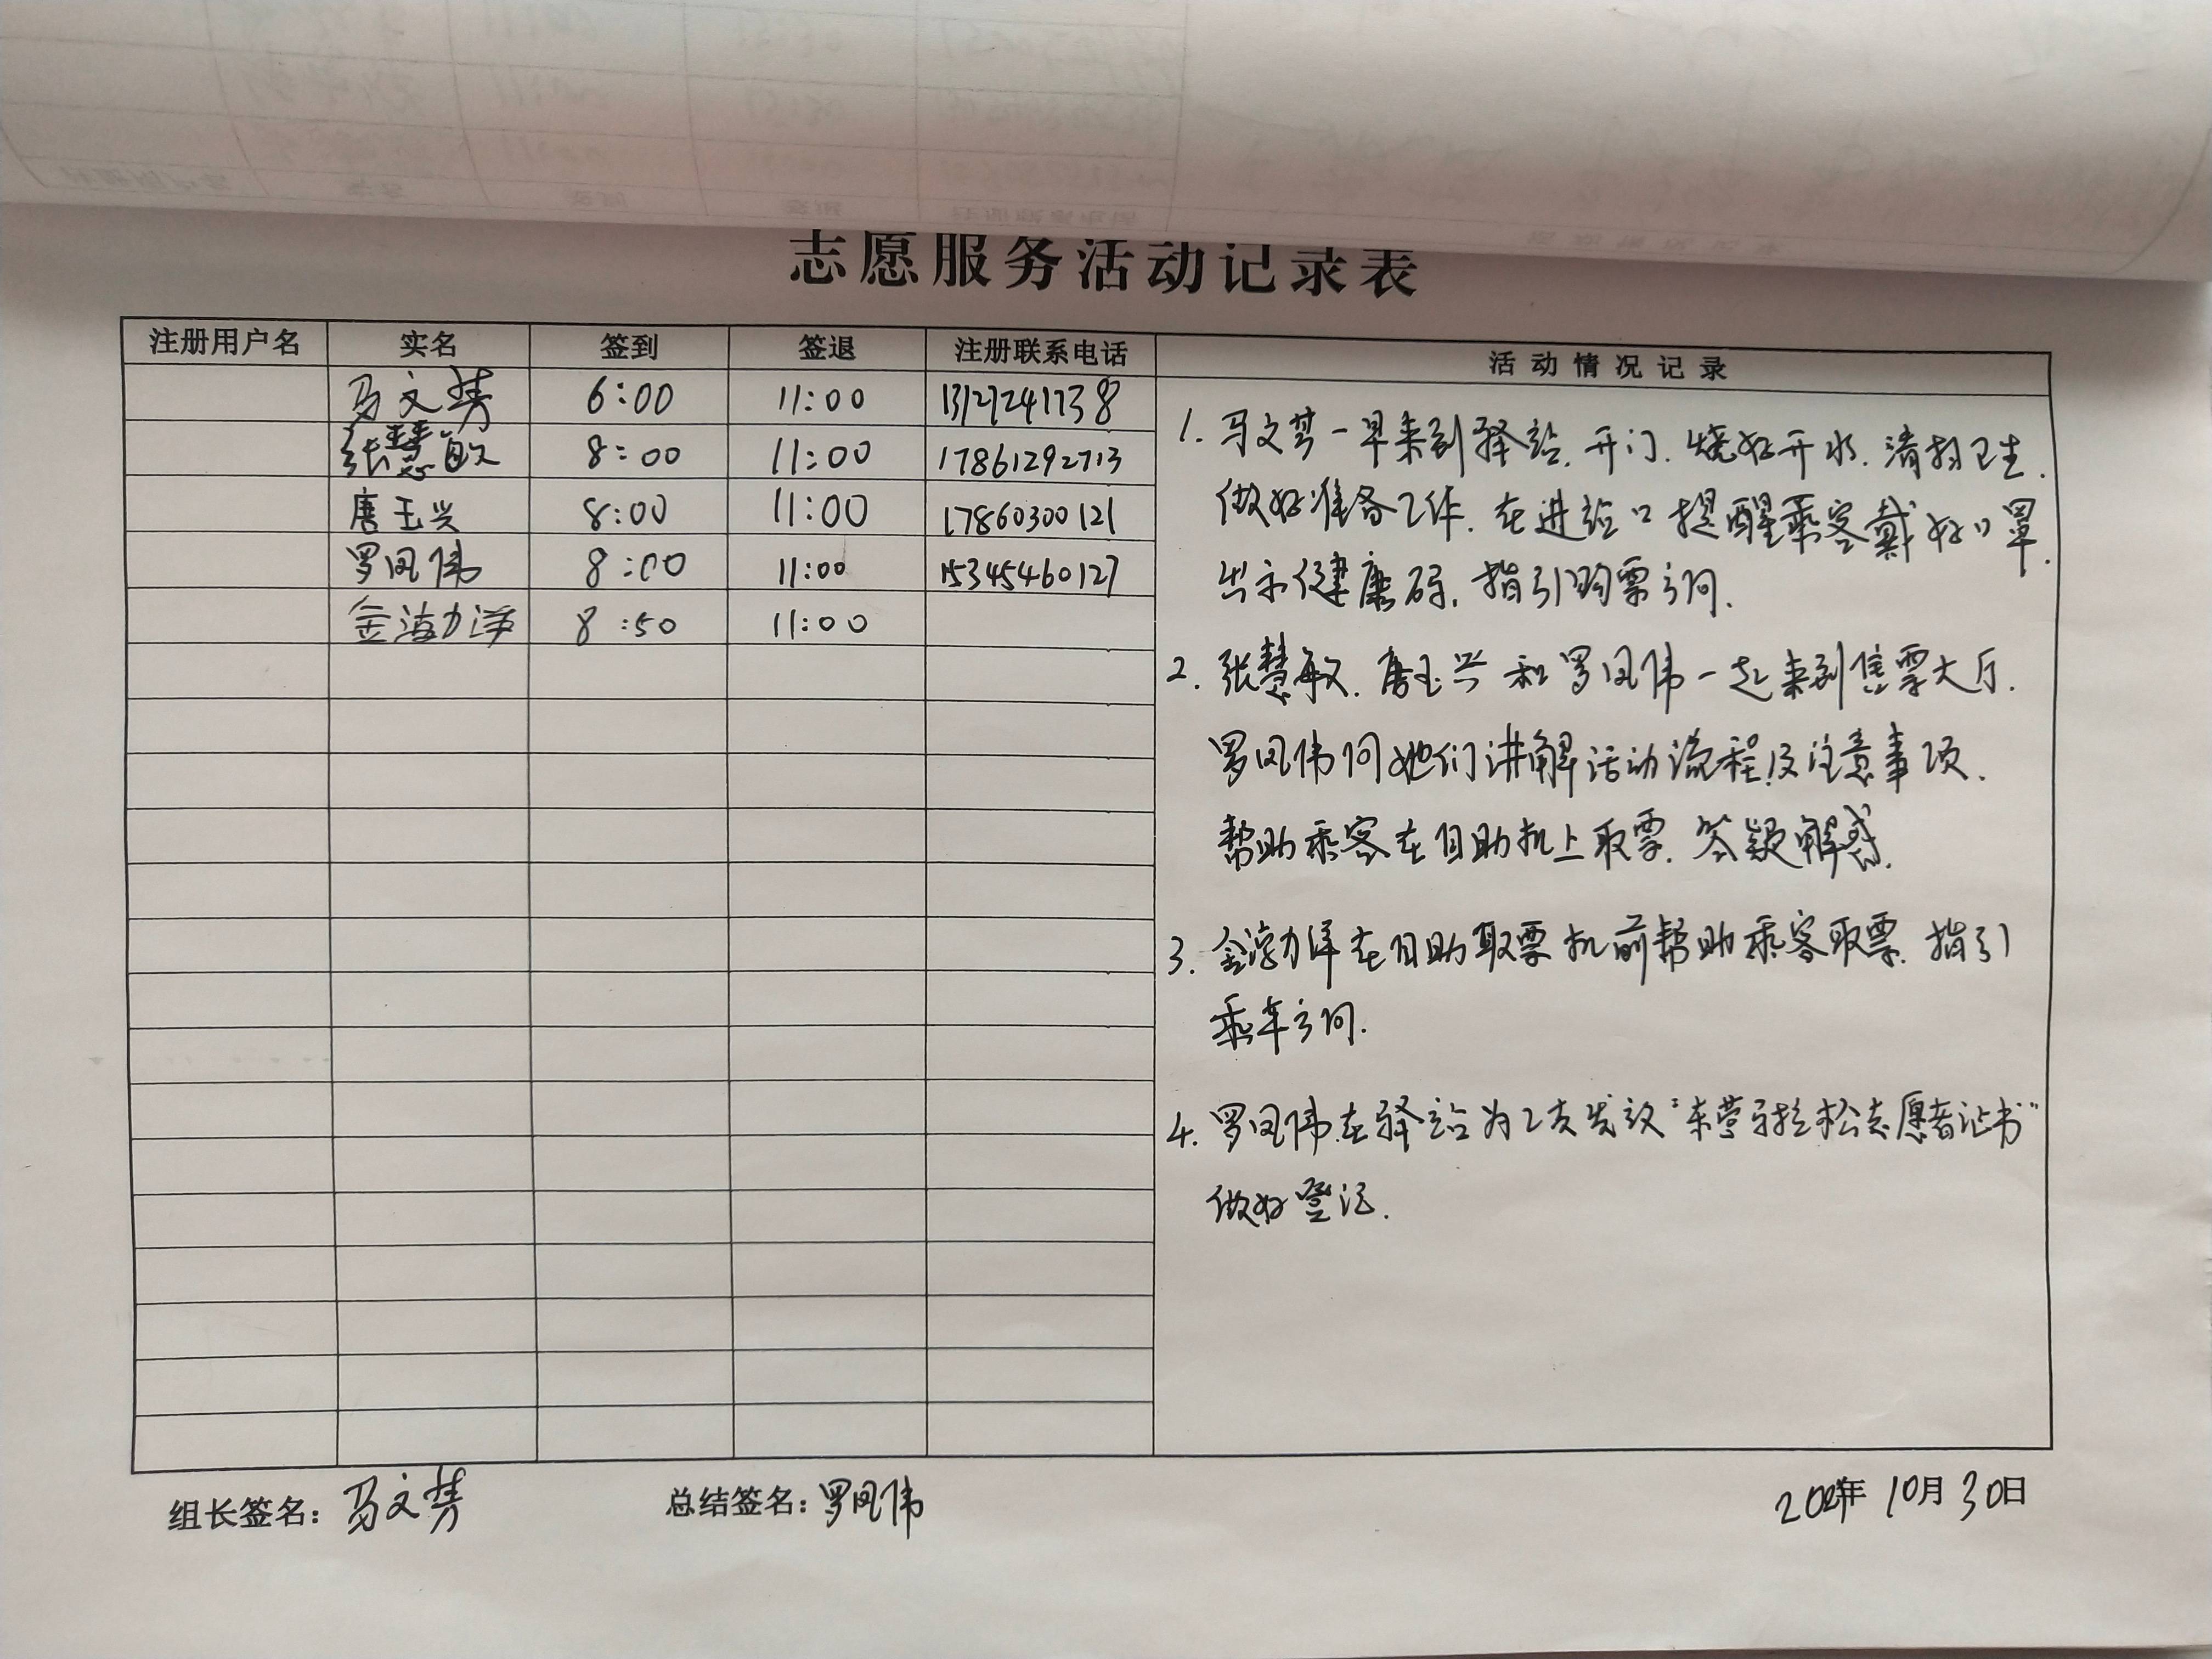 志愿服务活动记录表
注册用户名 实名 签到 签退 注册联系电话 活动情况记录
马文 6:00 11:00 13127241738
张慧敏 8:00 11:00 17861292713
唐玉兴 8:00 11:00 17860300121
罗凤伟 8:00 11:00 15345460127
金 8:50 11:00
1. 马文 一早来到驿站.开门.烧好开水.清扫卫生.
做好准备工作.在进站口提醒乘客戴好口罩.
出示健康码.指引购票方向.
2. 张慧敏.唐玉兴和罗凤伟一起来到售票大厅.
罗凤伟向她们讲解活动流程及注意事项.
帮助乘客在自助机上取票.答疑解惑.
3. 金 在自助取票机前帮助乘客取票.指引
乘车方向.
4. 罗凤伟在驿站为 发放“东营马拉松志愿者证书”
做好登记.
组长签名：马文 总结签名：罗凤伟 年10月30日